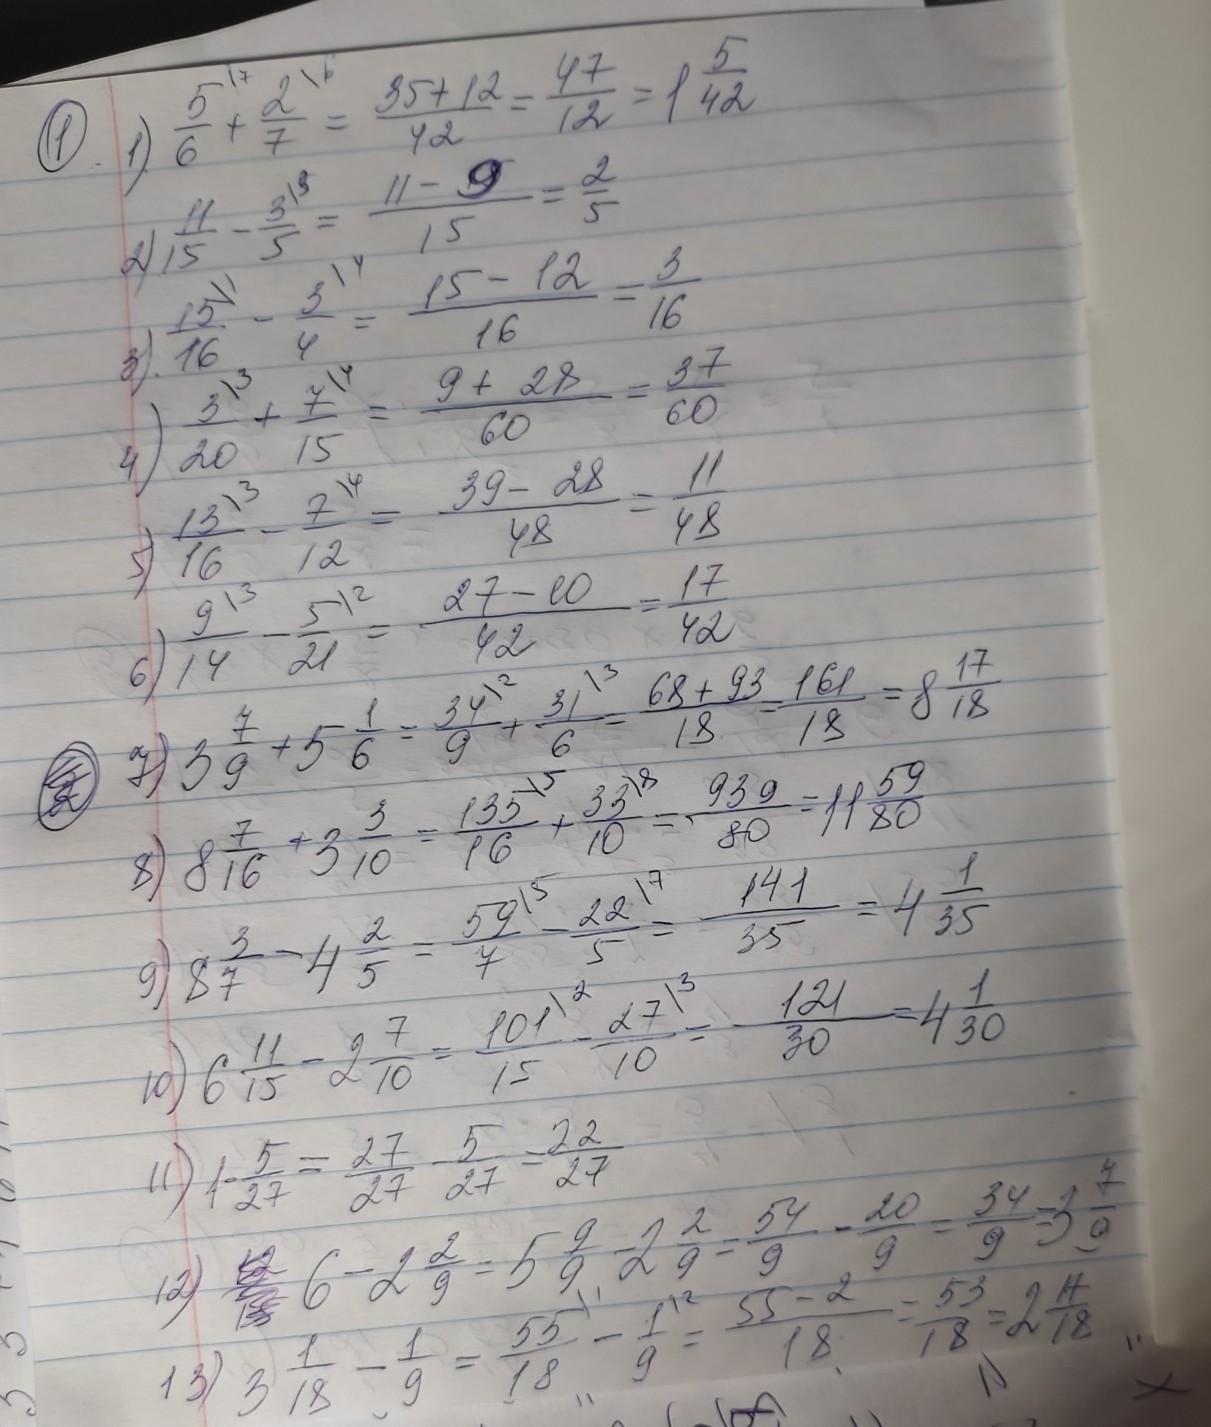 ① 1) 5/6 \7 + 2/7 \6 = (35+12)/42 = 47/12 = 1 5/42
2) 11/15 - 3/5 \3 = (11-9)/15 = 2/5
3) 15/16 \1 - 3/4 \4 = (15-12)/16 = 3/16
4) 3/20 \3 + 7/15 \4 = (9+28)/60 = 37/60
5) 13/16 \3 - 7/12 \4 = (39-28)/48 = 11/48
6) 9/14 \3 - 5/21 \2 = (27-10)/42 = 17/42
7) 3 7/9 + 5 1/6 = 34/9 \2 + 31/6 \3 = (68+93)/18 = 161/18 = 8 17/18
8) 8 7/16 + 3 3/10 = 135/16 \5 + 33/10 \8 = 939/80 = 11 59/80
9) 8 3/7 - 4 2/5 = 59/7 \5 - 22/5 \7 = 141/35 = 4 1/35
10) 6 11/15 - 2 7/10 = 101/15 \2 - 27/10 \3 = 121/30 = 4 1/30
11) 1 - 5/27 = 27/27 - 5/27 = 22/27
12) 6 - 2 2/9 = 5 9/9 - 2 2/9 = 54/9 - 20/9 = 34/9 = 3 7/9
13) 3 1/18 - 1/9 = 55/18 \1 - 1/9 \2 = (55-2)/18 = 53/18 = 2 17/18